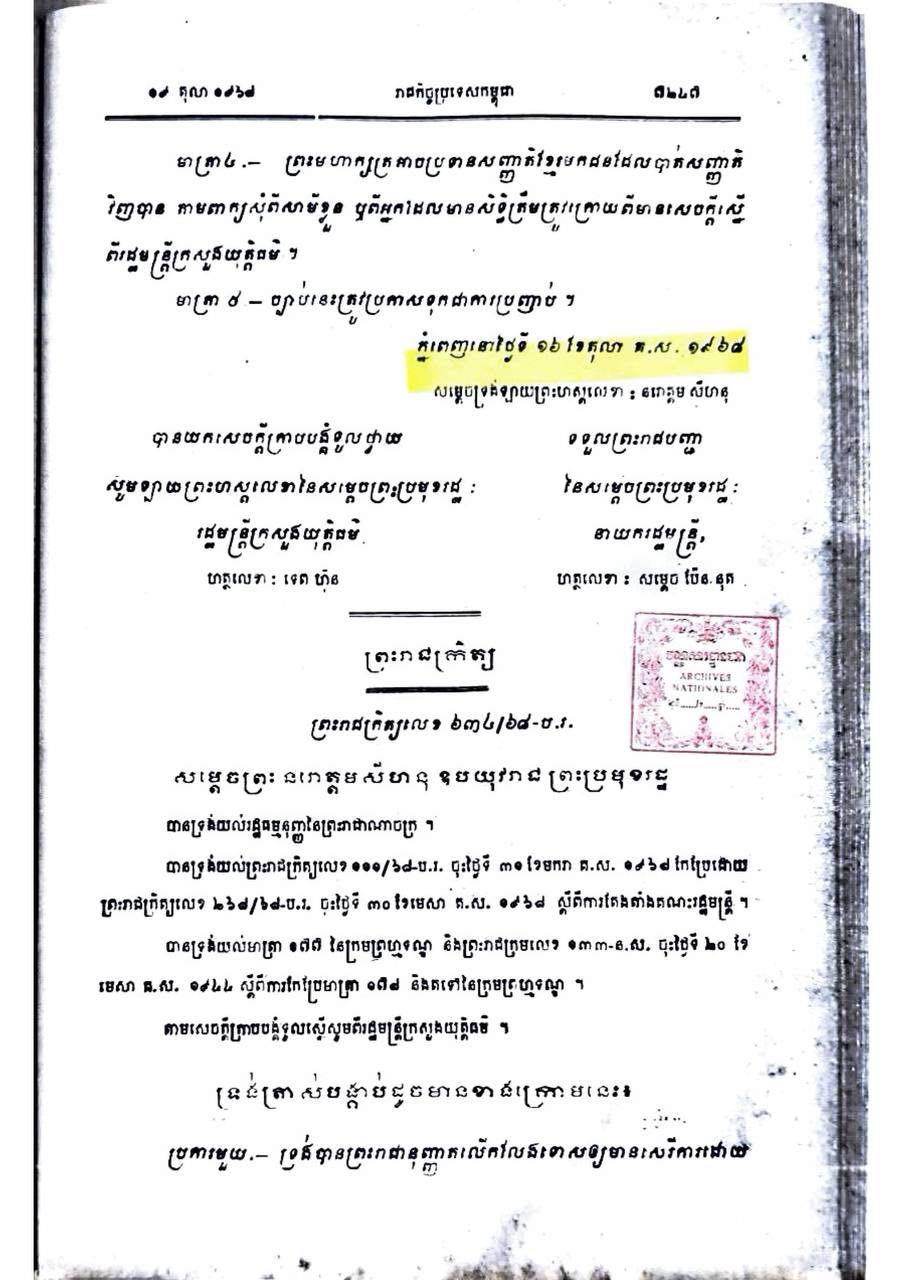 ១៩ តុលា ១៩៦៨ រាជកិច្ចប្រទេសកម្ពុជា ៧២៤៧
មាត្រា៤.— ព្រះមហាក្សត្រអាចប្រទានសញ្ជាតិខ្មែរមកជនដែលបាត់សញ្ជាតិ
វិញបាន តាមពាក្យសុំពីសាមីខ្លួន ឬពីអ្នកដែលមានសិទ្ធិត្រឹមត្រូវក្រោយពីមានសេចក្ដីស្នើ
ពីរដ្ឋមន្ត្រីក្រសួងយុត្តិធម៌ ។
មាត្រា ៥ — ច្បាប់នេះត្រូវប្រកាសទុកជាការប្រញាប់ ។
ភ្នំពេញនៅថ្ងៃទី ១៦ ខែតុលា គ.ស. ១៩៦៨
សម្ដេចទ្រង់ឡាយព្រះហស្តលេខា : នរោត្តម សីហនុ
បានយកសេចក្ដីក្រាបបង្គំទូលថ្វាយ ទទួលព្រះរាជបញ្ជា
សូមឡាយព្រះហស្តលេខានៃសម្ដេចព្រះប្រមុខរដ្ឋ : នៃសម្ដេចព្រះប្រមុខរដ្ឋ :
រដ្ឋមន្ត្រីក្រសួងយុត្តិធម៌ នាយករដ្ឋមន្ត្រី,
ហត្ថលេខា : ទេព ហ៊ុន ហត្ថលេខា : សម្ដេច ប៉ែន.នុត
ព្រះរាជក្រិត្យ
បណ្ណសារដ្ឋាន
ARCHIVES
NATIONALES
ព្រះរាជក្រិត្យលេខ ៦៣៤/៦៨-ប.រ.
សម្ដេចព្រះ នរោត្តមសីហនុ ឧបយុវរាជ ព្រះប្រមុខរដ្ឋ
បានទ្រង់យល់រដ្ឋធម្មនុញ្ញនៃព្រះរាជាណាចក្រ ។
បានទ្រង់យល់ព្រះរាជក្រិត្យលេខ ១១១/៦៨-ប.រ. ចុះថ្ងៃទី ៣១ ខែមករា គ.ស. ១៩៦៨ កែប្រែដោយ
ព្រះរាជក្រិត្យលេខ ២៦៨/៦៨-ប.រ. ចុះថ្ងៃទី ៣០ ខែមេសា គ.ស. ១៩៦៨ ស្ដីពីការតែងតាំងគណៈរដ្ឋមន្ត្រី ។
បានទ្រង់យល់មាត្រា ១៧៧ នៃក្រមព្រហ្មទណ្ឌ និងព្រះរាជក្រមលេខ ១៣៣-ន.ស. ចុះថ្ងៃទី ២០ ខែ
មេសា គ.ស. ១៩៤៤ ស្ដីពីការកែប្រែមាត្រា ១៧៨ និងតទៅនៃក្រមព្រហ្មទណ្ឌ ។
តាមសេចក្ដីក្រាបបង្គំទូលស្នើសូមពីរដ្ឋមន្ត្រីក្រសួងយុត្តិធម៌ ។
ទ្រង់ត្រាស់បង្គាប់ដូចមានខាងក្រោមនេះ៖
ប្រការមួយ.— ទ្រង់បានព្រះរាជានុញ្ញាតលើកលែងទោសឲ្យមានសេរីការដោយ